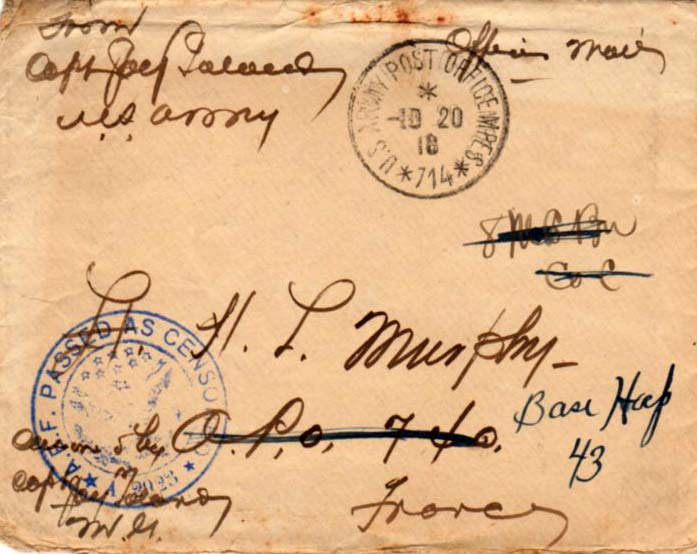 From
Capt
U.S. Army
Officers Mail
U.S. ARMY POST OFFICE M.P.E.S.
* 714 *
-10 20
18
8 M G Bn
Co C
Lt. H. L. Murphy
A.P.O. 740.
Base Hosp
43
France
A.E.F. PASSED AS CENSORED
Censored by
Capt